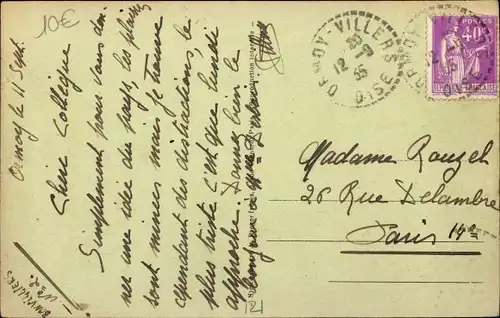 10€
Ormoy le 11 Sept.
Chère Collègue
Simplement pour vous don-
ner une idée du pays, les plaisirs
sont minces mais je trouve
cependant des distractions, le
plus triste c'est que lundi
approche. Donnez bien le
bonjour à Mme
ORMOY-VILLERS
12 - 9
35
OISE
POSTES
40c
Madame Rouzel
26 Rue Delambre
Paris 14e